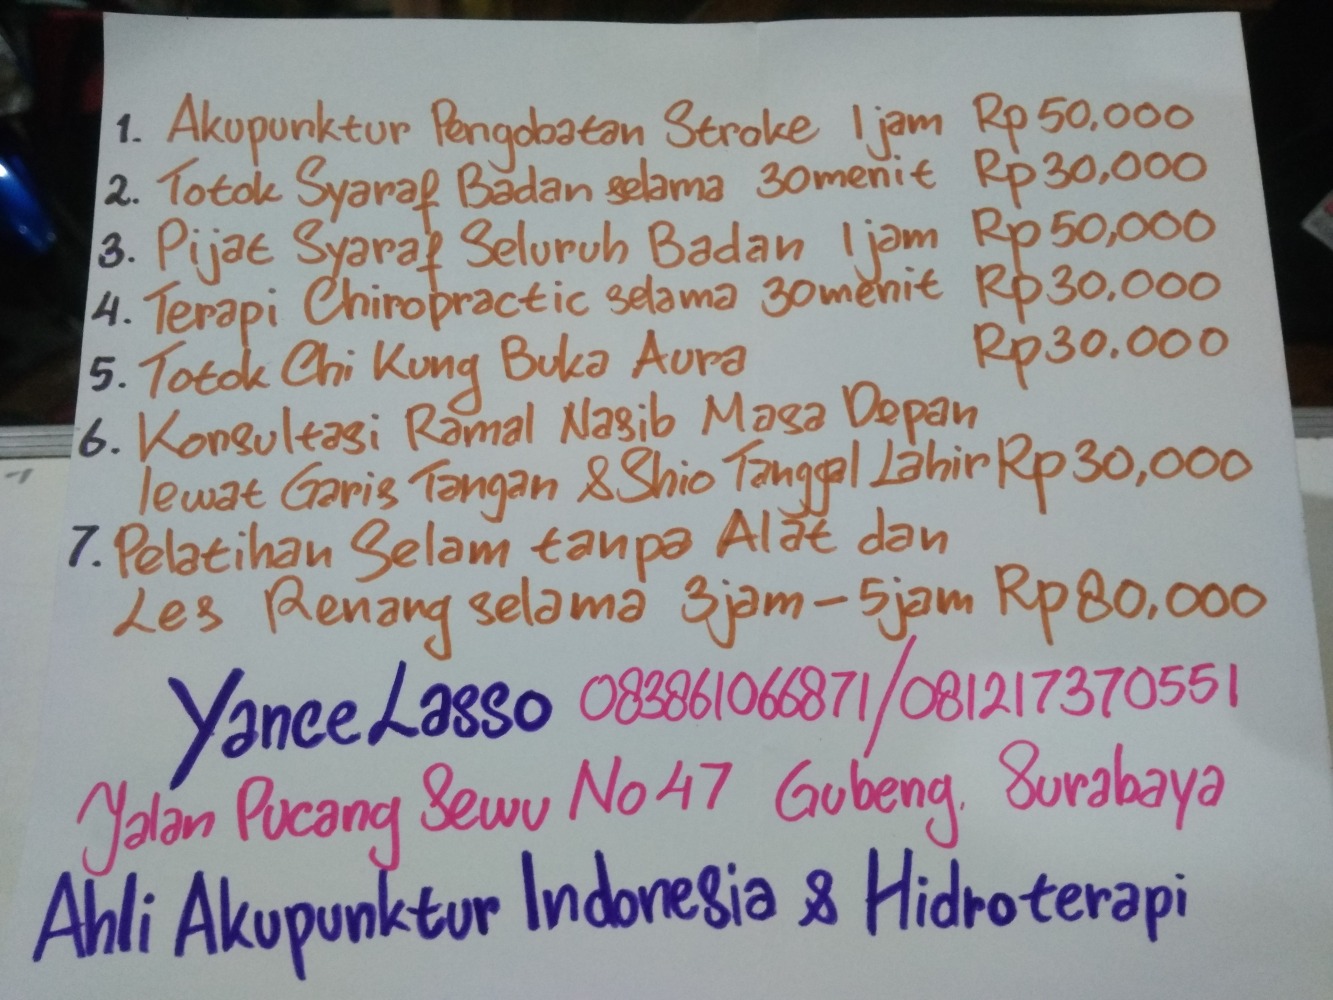 1. Akupunktur Pengobatan Stroke 1 jam Rp 50.000
2. Totok Syaraf Badan selama 30menit Rp 30,000
3. Pijat Syaraf Seluruh Badan 1 jam Rp 50,000
4. Terapi Chiropractic selama 30menit Rp 30.000
5. Totok Chi Kung Buka Aura Rp 30.000
6. Konsultasi Ramal Nasib Masa Depan
lewat Garis Tangan & Shio Tanggal Lahir Rp 30,000
7. Pelatihan Selam tanpa Alat dan
Les Renang selama 3jam - 5jam Rp 80.000
Yance Lasso 083861066871/081217370551
Jalan Pucang Sewu No 47 Gubeng. Surabaya
Ahli Akupunktur Indonesia & Hidroterapi